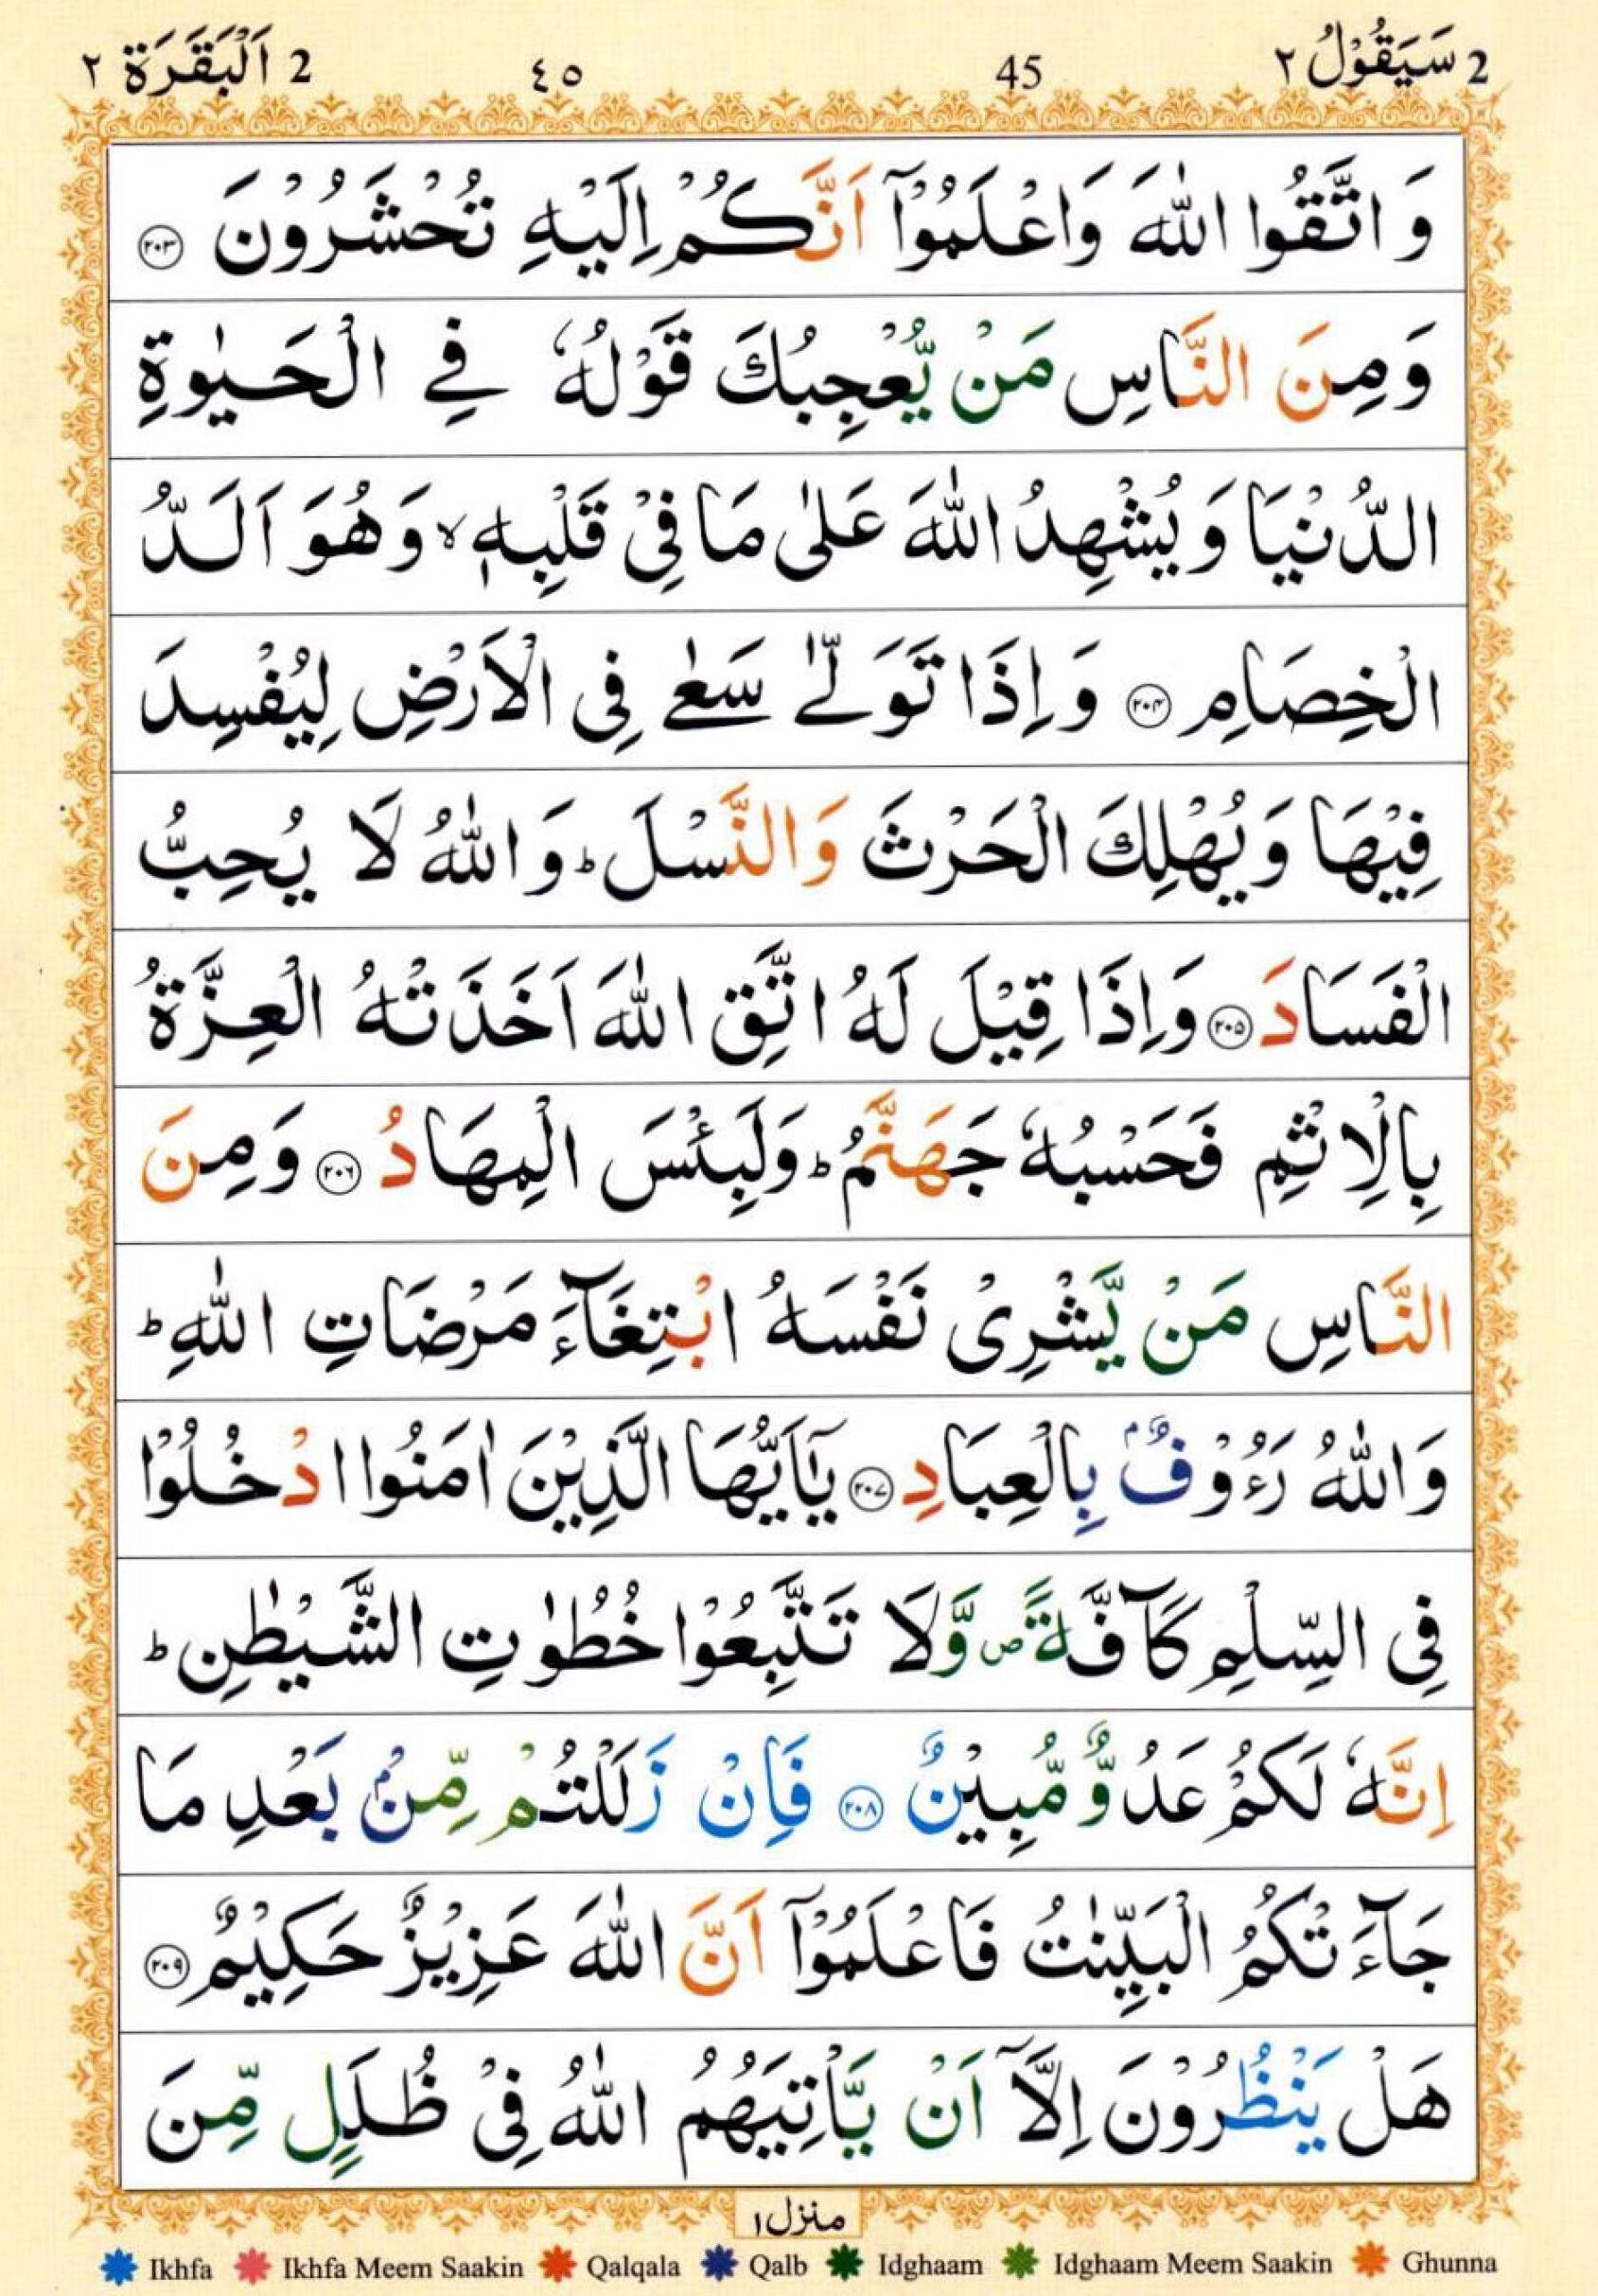 2 سَيَقُوْلُ ٢ 45 ٤٥ 2 اَلْبَقَرَة ٢
وَ اتَّقُوا اللّٰهَ وَاعْلَمُوْۤا اَنَّكُمْ اِلَيْهِ تُحْشَرُوْنَ ۝۲۰۳
وَمِنَ النَّاسِ مَنْ يُّعْجِبُكَ قَوْلُهٗ فِي الْحَيٰوةِ
الدُّنْيَا وَيُشْهِدُ اللّٰهَ عَلٰى مَا فِيْ قَلْبِهٖ ۙ وَهُوَ اَلَدُّ
الْخِصَامِ ۝۲۰۴ وَ اِذَا تَوَلّٰى سَعٰى فِى الْاَرْضِ لِيُفْسِدَ
فِيْهَا وَيُهْلِكَ الْحَرْثَ وَالنَّسْلَ ؕ وَاللّٰهُ لَا يُحِبُّ
الْفَسَادَ ۝۲۰۵ وَاِذَا قِيْلَ لَهُ اتَّقِ اللّٰهَ اَخَذَتْهُ الْعِزَّةُ
بِالْاِثْمِ فَحَسْبُهٗ جَهَنَّمُ ؕ وَلَبِئْسَ الْمِهَادُ ۝۲۰۶ وَمِنَ
النَّاسِ مَنْ يَّشْرِىْ نَفْسَهُ ابْتِغَآءَ مَرْضَاتِ اللّٰهِ ؕ
وَاللّٰهُ رَءُوْفٌۢ بِالْعِبَادِ ۝۲۰۷ يٰۤاَيُّهَا الَّذِيْنَ اٰمَنُوا ادْخُلُوْا
فِى السِّلْمِ كَآفَّةً ۪ وَّلَا تَتَّبِعُوْا خُطُوٰتِ الشَّيْطٰنِ ؕ
اِنَّهٗ لَكُمْ عَدُوٌّ مُّبِيْنٌ ۝۲۰۸ فَاِنْ زَلَلْتُمْ مِّنْۢ بَعْدِ مَا
جَآءَتْكُمُ الْبَيِّنٰتُ فَاعْلَمُوْۤا اَنَّ اللّٰهَ عَزِيْزٌ حَكِيْمٌ ۝۲۰۹
هَلْ يَنْظُرُوْنَ اِلَّاۤ اَنْ يَّاْتِيَهُمُ اللّٰهُ فِيْ ظُلَلٍ مِّنَ
منزل ١
Ikhfa Ikhfa Meem Saakin Qalqala Qalb Idghaam Idghaam Meem Saakin Ghunna